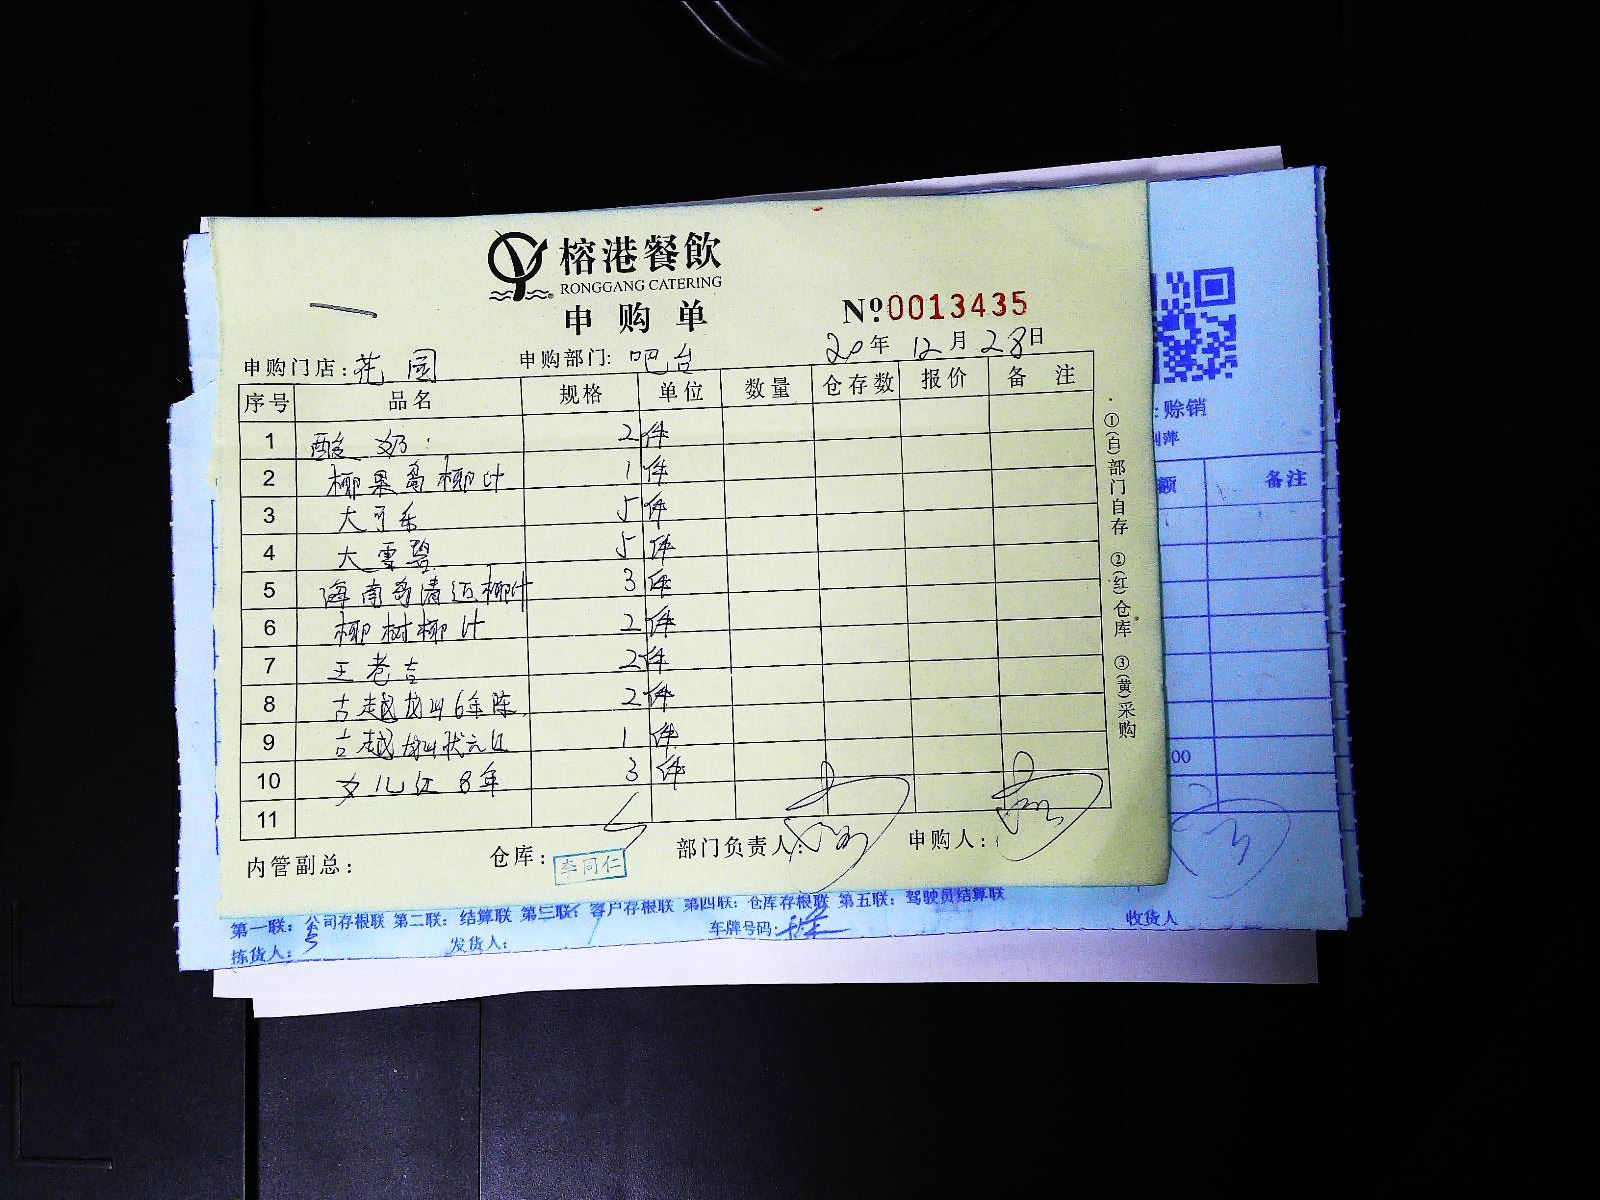 榕港餐飲
RONGGANG CATERING
申购单
№0013435
20年12月28日
申购门店:花园 申购部门:吧台
序号 品名 规格 单位 数量 仓存数 报价 备注
1 酸奶 2件
2 椰果哥椰汁 1件
3 大可乐 5件
4 大雪碧 5件
5 海南哥清近椰汁 3件
6 椰树椰汁 2件
7 王老吉 2件
8 古越龙山6年陈 2件
9 古越龙山状元红 1件
10 女儿红8年 3件
11
内管副总: 仓库: 李同仁 部门负责人: 申购人:
①(白)部门自存 ②(红)仓库 ③(黄)采购
赊销
萍
额 备注
00
第一联:公司存根联 第二联:结算联 第三联:客户存根联 第四联:仓库存根联 第五联:驾驶员结算联
拣货人: 发货人: 车牌号码: 收货人